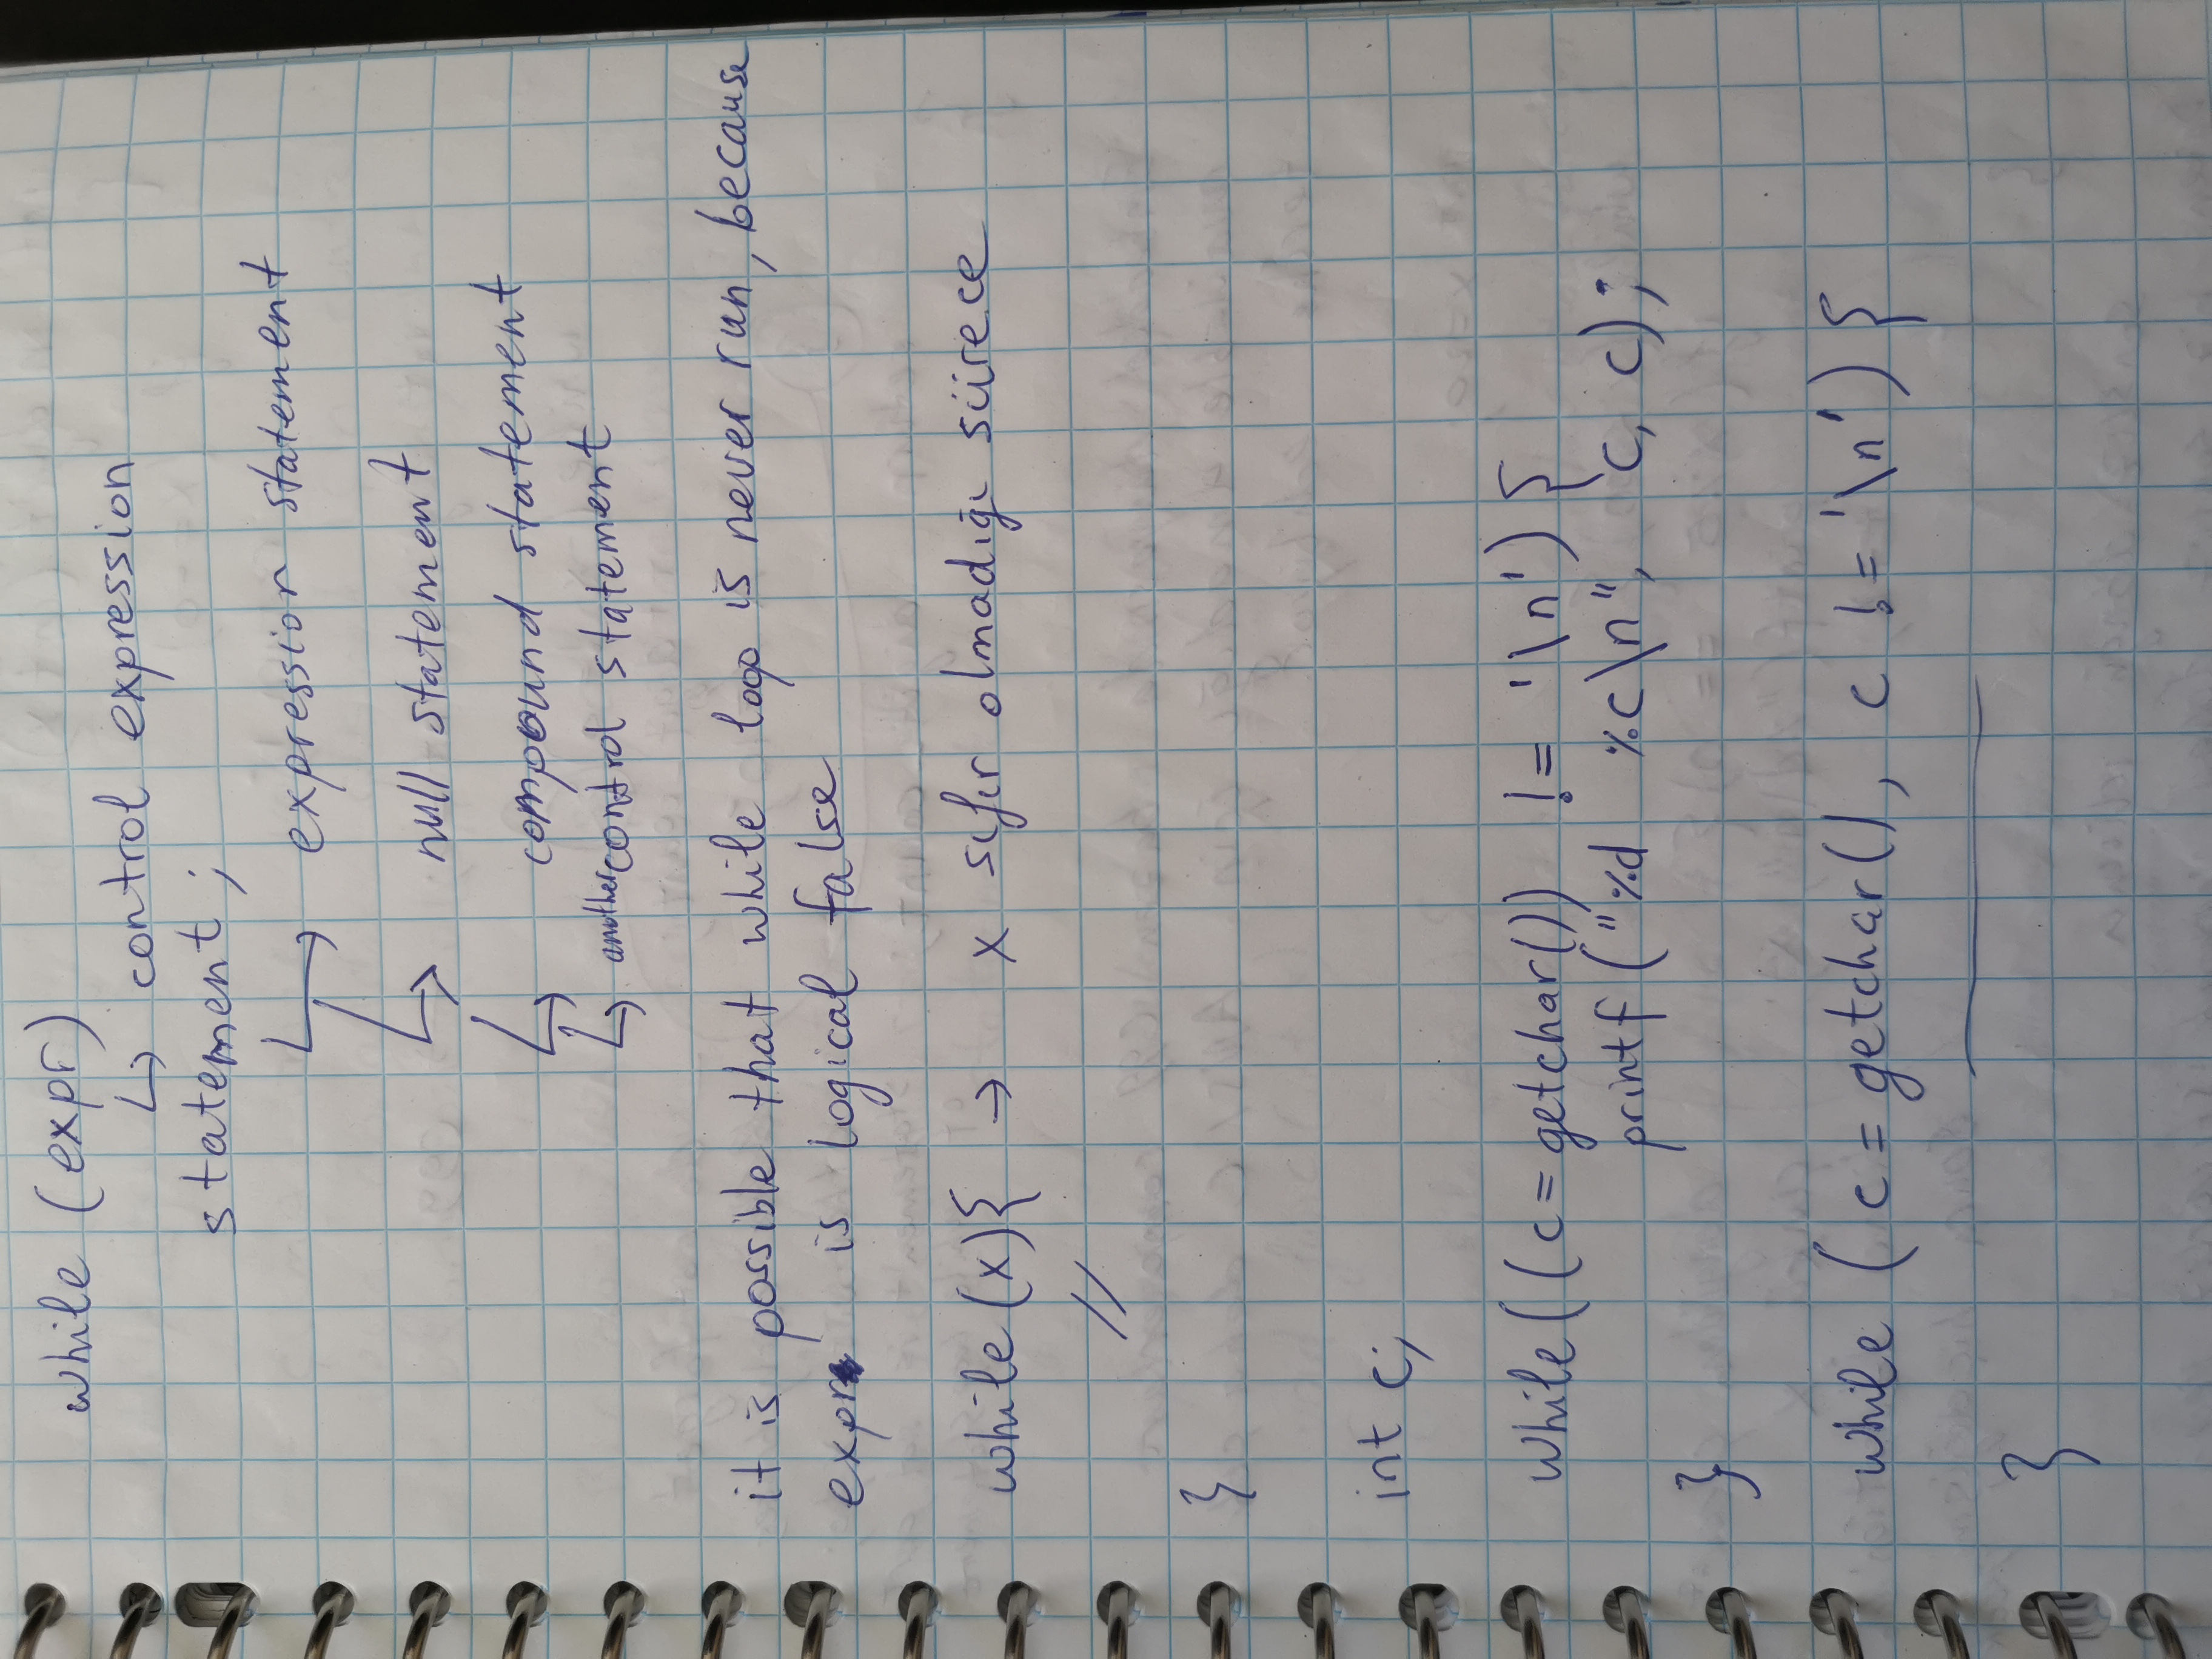 while (expr)
↳ control expression
statement;
↳ expression statement
↳ null statement
↳ compound statement
↳ another control statement
it is possible that while loop is never run, because
expr is logical false
while (x){ → x sıfır olmadığı sürece
//
}
int c;
while((c = getchar()) != '\n') {
printf ("%d %c\n", c, c);
}
while ( c = getchar(), c != '\n') {
}